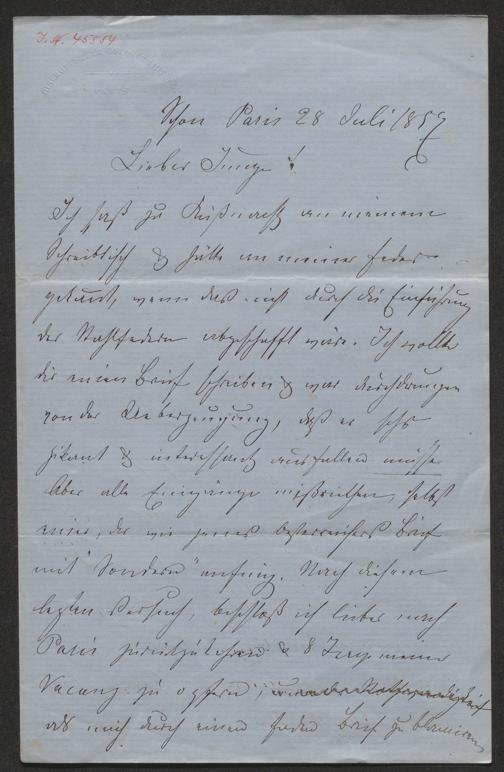 J.N. 45554
Schon Paris 28 Juli 1857
Lieber Junge!
Ich saß zu Küßnacht an meinem
Schreibtisch & hätte an meiner Feder
gekaut, wenn das nicht durch die Einführung
der Stahlfedern abgeschafft wäre. Ich wollte
dir einen Brief schreiben & war durchdrungen
von der Ueberzeugung, daß er sehr
pikant & interessant ausfallen müsse
Aber alle Eingänge mißriethen, selbst
einer, der wie jenes Brief
mit "Sondern" anfing. Nach diesem
letzten Versuch, beschloß ich lieber nach
Paris zurückzukehren & 8 Tage meiner
Vacanz zu opfern,
als mich durch einen faden Brief zu blamiren,